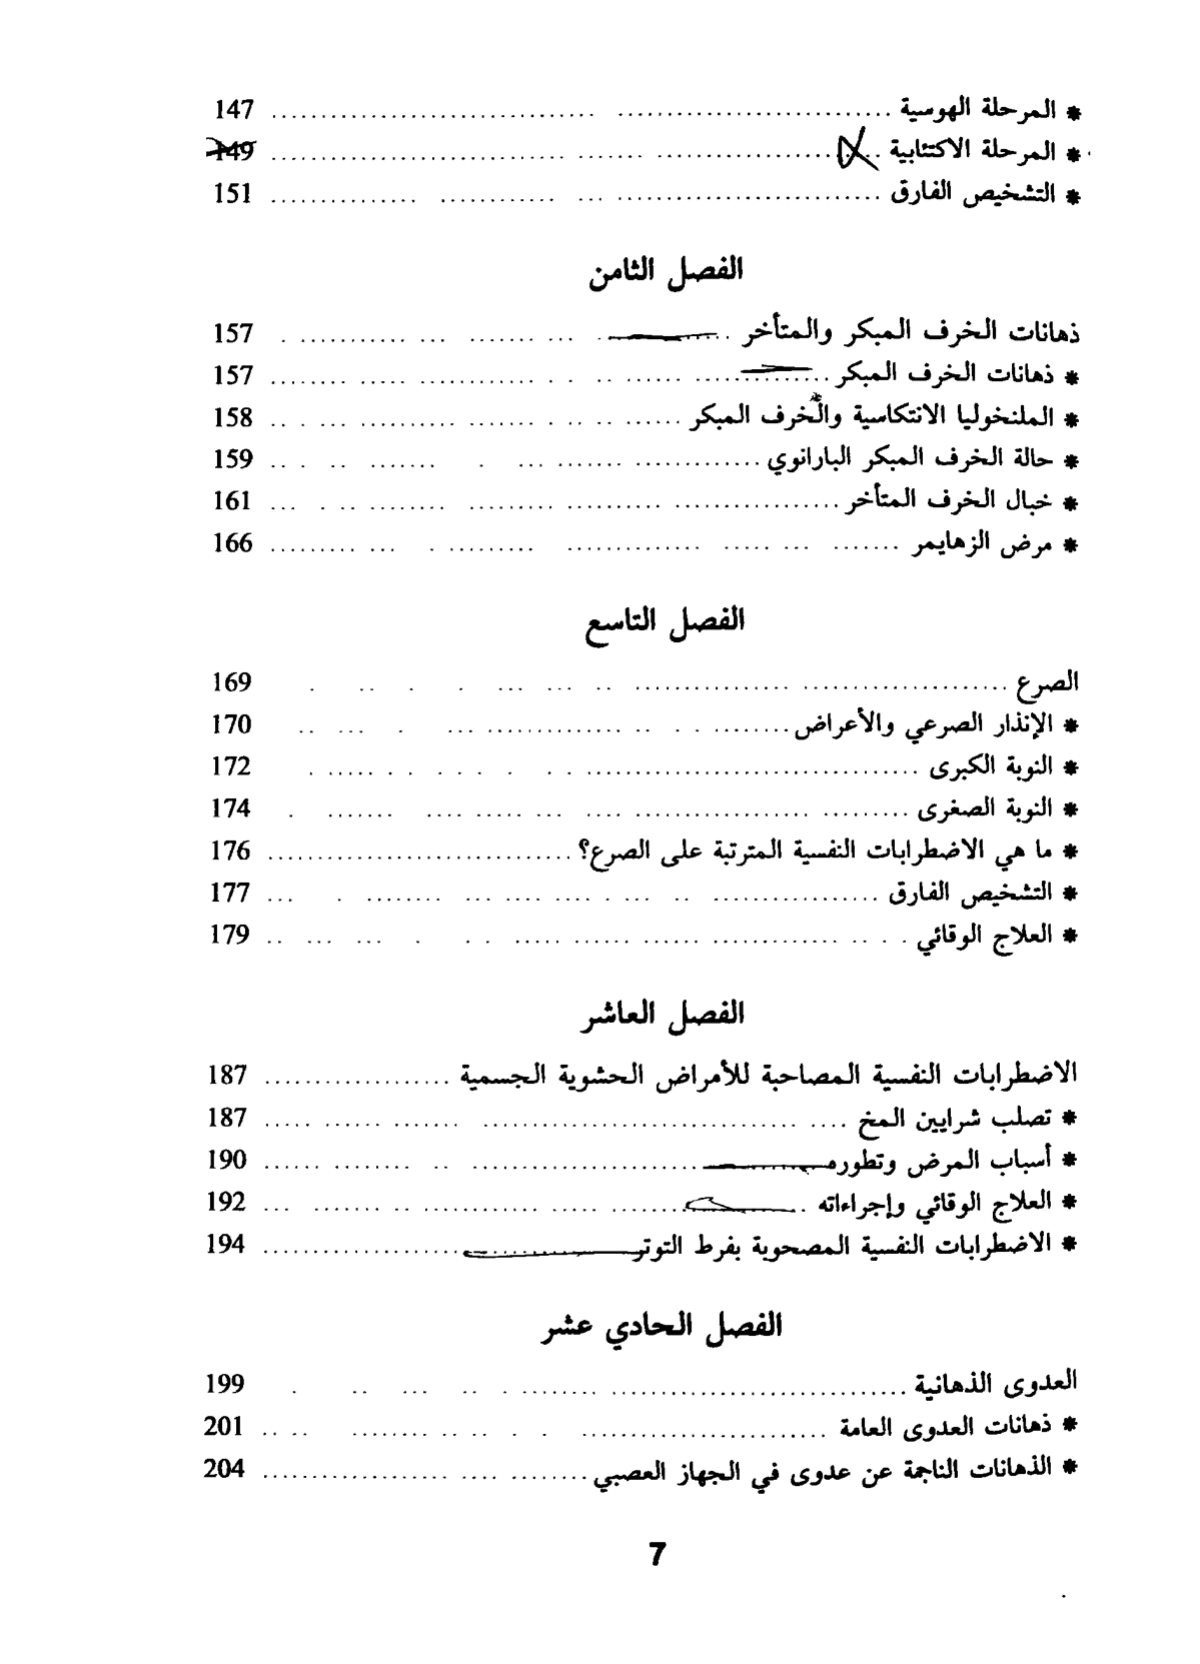 * المرحلة الهوسية ........ 147
* المرحلة الاكتئابية ........ 149
* التشخيص الفارق ........ 151
الفصل الثامن
ذهانات الخرف المبكر والمتأخر ........ 157
* ذهانات الخرف المبكر ........ 157
* الملنخوليا الانتكاسية والخرف المبكر ........ 158
* حالة الخرف المبكر البارانوي ........ 159
* خبال الخرف المتأخر ........ 161
* مرض الزهايمر ........ 166
الفصل التاسع
الصرع ........ 169
* الإنذار الصرعي والأعراض ........ 170
* النوبة الكبرى ........ 172
* النوبة الصغرى ........ 174
* ما هي الاضطرابات النفسية المترتبة على الصرع؟ ........ 176
* التشخيص الفارق ........ 177
* العلاج الوقائي ........ 179
الفصل العاشر
الاضطرابات النفسية المصاحبة للأمراض الحشوية الجسمية ........ 187
* تصلب شرايين المخ ........ 187
* أسباب المرض وتطوره ........ 190
* العلاج الوقائي وإجراءاته ........ 192
* الاضطرابات النفسية المصحوبة بفرط التوتر ........ 194
الفصل الحادي عشر
العدوى الذهانية ........ 199
* ذهانات العدوى العامة ........ 201
* الذهانات الناجمة عن عدوى في الجهاز العصبي ........ 204
7